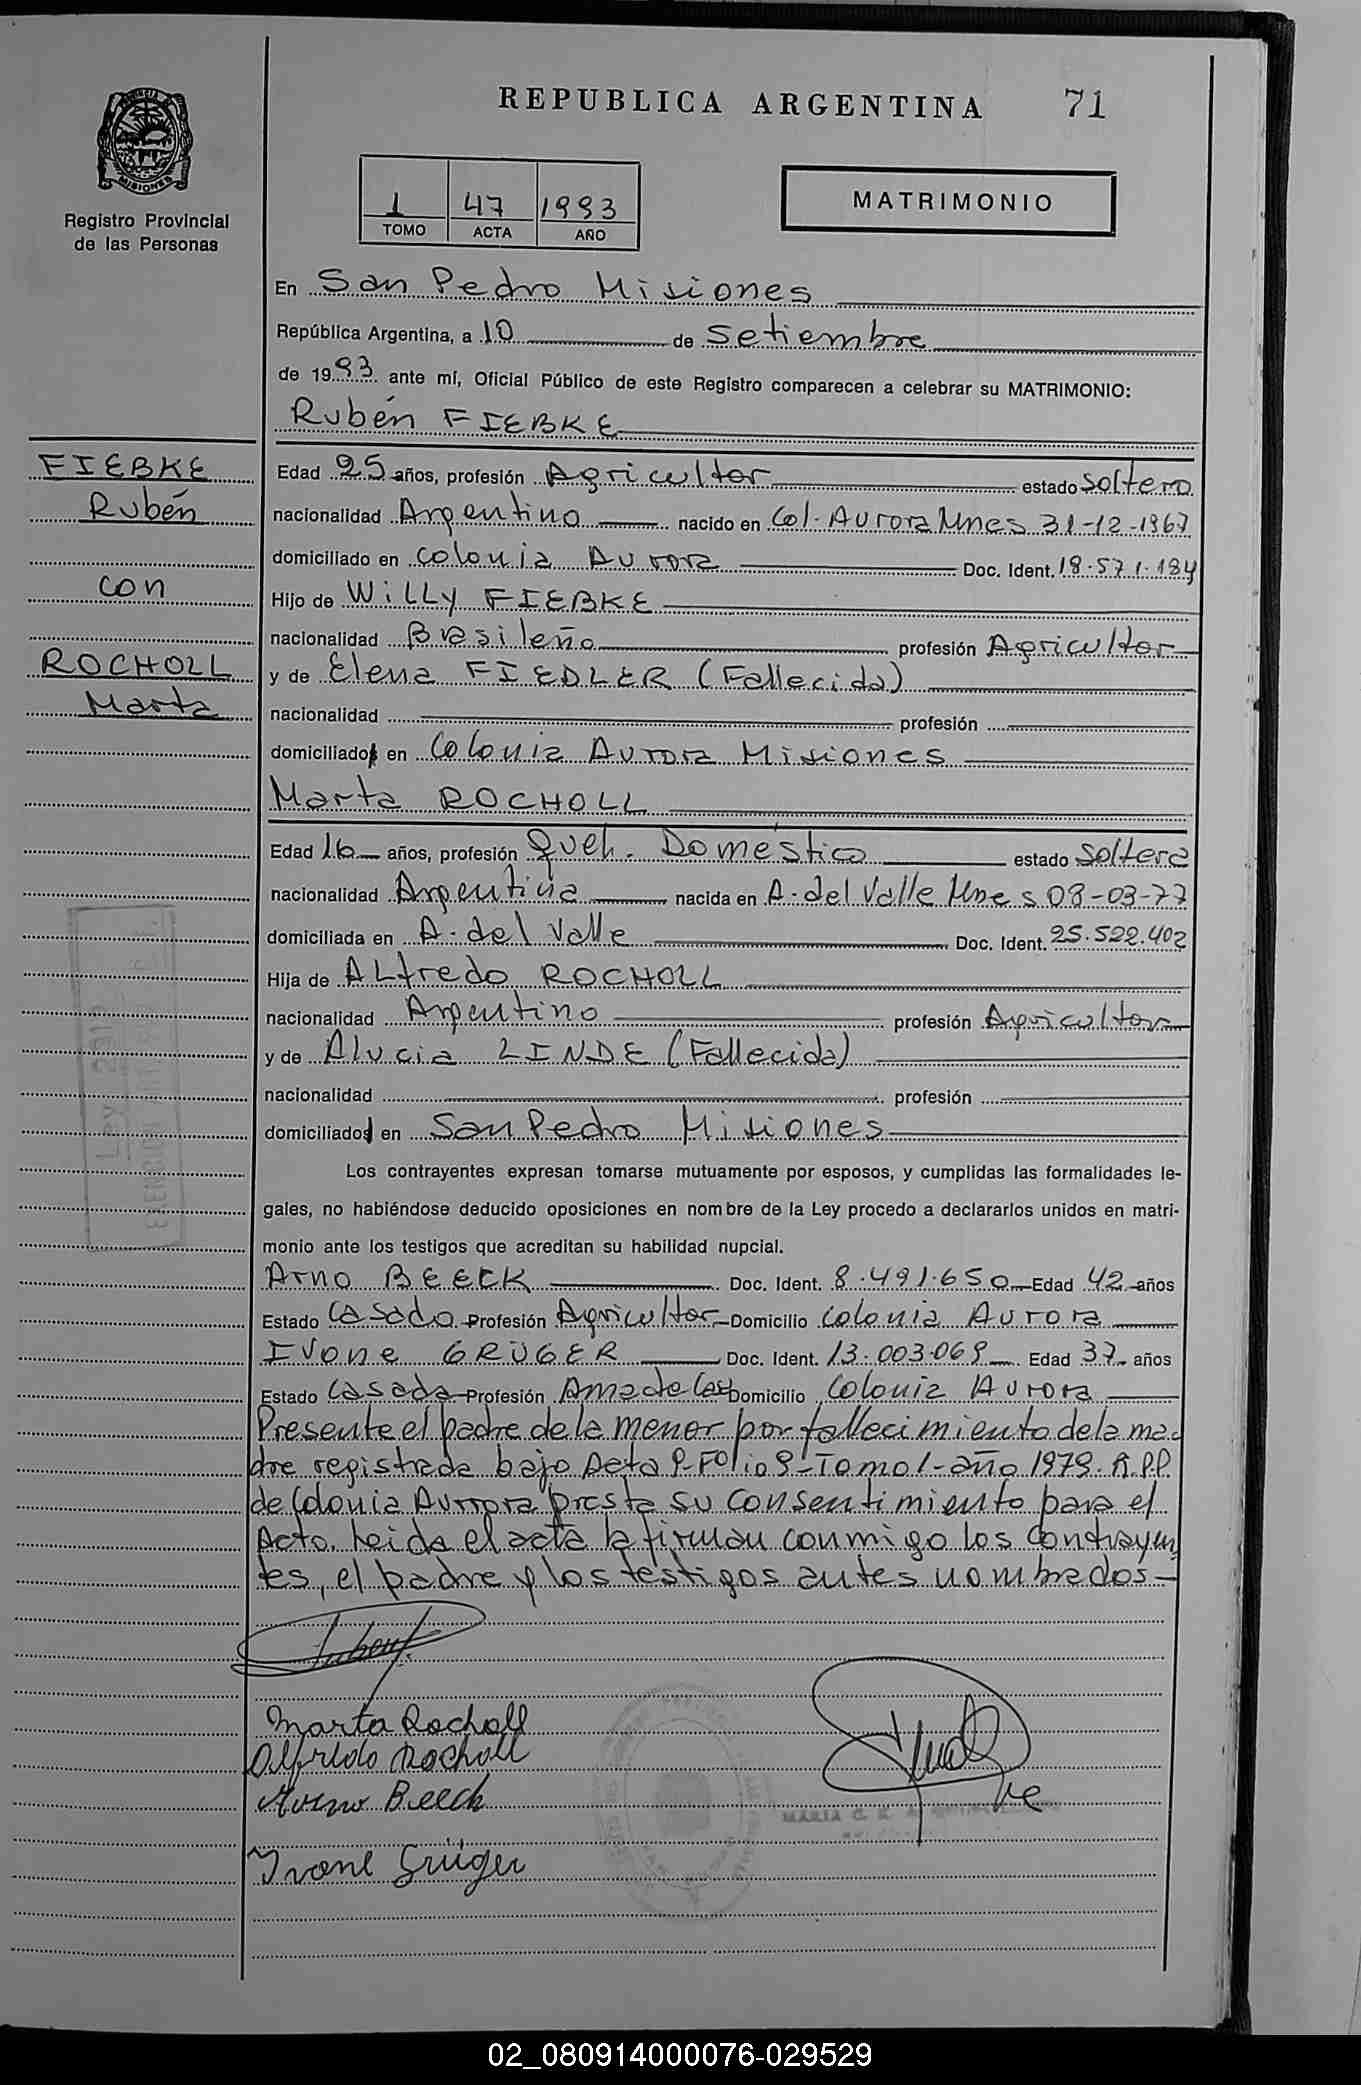 REPUBLICA ARGENTINA 71
PROVINCIA DE
MISIONES
Registro Provincial
de las Personas
1 47 1993
TOMO ACTA AÑO
MATRIMONIO
En San Pedro Misiones
República Argentina, a 10 de Setiembre
de 1993 ante mí, Oficial Público de este Registro comparecen a celebrar su MATRIMONIO:
Rubén FIEBKE
FIEBKE
Rubén
con
ROCHOLL
Marta
Edad 25 años, profesión Agricultor estado Soltero
nacionalidad Argentino nacido en Col. Aurora Mnes 31-12-1967
domiciliado en Colonia Aurora Doc. Ident. 18.571.184
Hijo de WiLLy FIEBKE
nacionalidad Brasileño profesión Agricultor
y de Elena FIEDLER (Fallecida)
nacionalidad profesión
domiciliado en Colonia Aurora Misiones
Marta ROCHOLL
Edad 16 años, profesión Queh. Doméstico estado Soltera
nacionalidad Argentina nacida en A. del Valle Mnes 08-03-77
domiciliada en A. del Valle Doc. Ident. 25.522.402
Hija de ALfredo ROCHOLL
nacionalidad Argentino profesión Agricultor
y de Alucia LINDE (Fallecida)
nacionalidad profesión
domiciliado en San Pedro Misiones
Los contrayentes expresan tomarse mutuamente por esposos, y cumplidas las formalidades le-
gales, no habiéndose deducido oposiciones en nombre de la Ley procedo a declararlos unidos en matri-
monio ante los testigos que acreditan su habilidad nupcial.
Arno BEECK Doc. Ident. 8.491.650 Edad 42 años
Estado Casado Profesión Agricultor Domicilio Colonia Aurora
IVone GRÜGER Doc. Ident. 13.003.069 Edad 37 años
Estado Casada Profesión Ama de Casa Domicilio Colonia Aurora
Presente el padre de la menor por fallecimiento de la ma
dre registrada bajo Acta 9-Folio 9-Tomo 1-año 1979. R.P.P.
de Colonia Aurrora presta su consentimiento para el
Acto. Leida el acta la firman conmigo los contrayen
tes, el padre y los testigos antes nombrados-
Marta Rocholl
Alfredo Rocholl
Arno Beeck
MARIA C.
Ivone Grüger
02_080914000076-029529